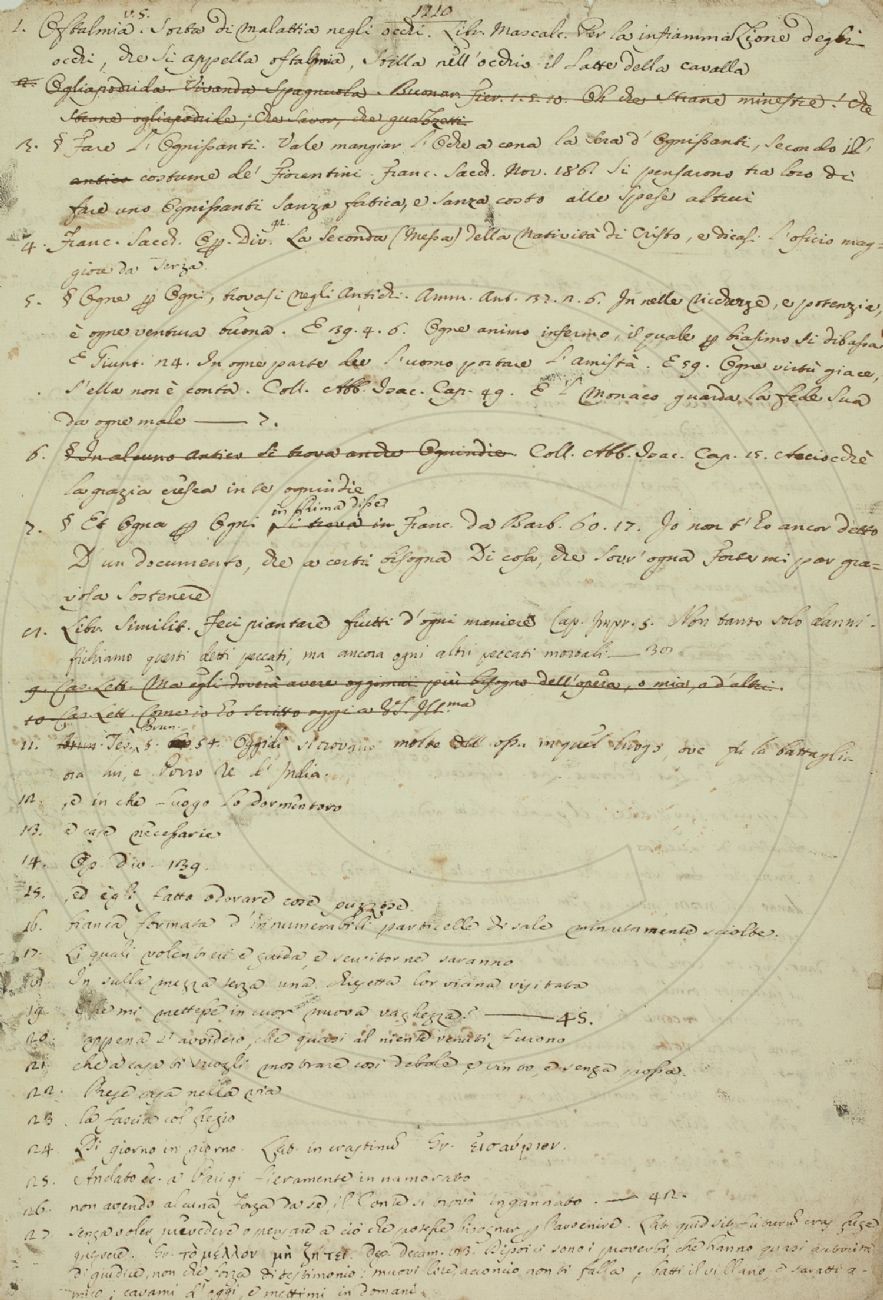 1210
v.s.
1. Oftalmia. Sorta di Malattia negli occhi. Libr. Mascalc. Per la infiammazione degli
occhi, che si appella oftalmia, stilla nell'occhio il latte della cavalla
2. Ogliapodrida. Vivanda Spagnuola. Buonar. Fier. 1. 5. 10. Oh che strane minestre! che
strane ogliapodride, che savor, che guazzetti.
3. § Fare l'Ognissanti. Vale mangiar l'Oche a cena la sera d'Ognissanti, secondo il
antico costume de' Fiorentini. Franc. Sacch. Nov. 186. Si pensarono tra loro di
fare uno Ognissanti sanza fatica, e sanza costo alle spese altrui
4. Franc. Sacch. Op. Div. La seconda (Messa) della Natività di Cristo, e dicasi l'oficio mag=
giore da Terza.
5. § Ogne p Ogni, trovasi negli Antichi. Amm. Ant. 32. 2. 6. In nelle ricchezze, e potenzia,
è ogne ventura buona. E 39. 4. 6. Ogne animo infermo, il quale p biasimo si dibassa
E Giunt. 24. In ogne parte dee l'uomo portare l'amistà. E 59. Ogne virtù giace,
s'ella non è conta. Coll. Abb. Isac. Cap. 49. E il Monaco guarda la fede sua
da ogne male —— 7.
6. § In alcuno antico si trova anche Ognindie. Coll. Abb. Isac. Cap. 15. Acciocchè
la grazia cresca in te ognindie
in rima disse
7. § Et Ogna p Ogni si trova in Franc. da Barb. 60. 17. Io non t'ho ancor detto
D'un documento, che a certi bisogna Di cosa, che sovr'ogna Forte mi par gra=
vosa sostenere
Libr. Similit. Feci piantare frutti d'ogni maniere Cap. Impr. 5. Non tanto solo danni-
fichiamo questi detti peccati, ma ancora ogni altri peccati mortali — 30.
9. Car. Lett. Ma egli doverà avere oggimai più bisogno dell'opera, o mia, o d'altri.
10 Car. Lett. Come io ho scritto oggi a V.S. Ill.ma
Brun.
11. Tes. 5. 54. Oggidì si trovano molte ossa in quel luogo, ove fu la battaglia
tra lui, e Porro Re d'India.
12. , e in che luogo lo dormentoro
13. e case necessarie
14. Op. div. 139.
15. , ed egli fatto odorare cose puzzose.
16. bianca formata d'innumerabili particelle di sale minutamente sciolte.
17. Li quali volentieri e guida, e servitorne saranno
18. In sulla mezza terza una Chiesetta lor vicina visitata
19. Che mi mettesse in cuor nuova vaghezza? —— 45.
20. appena s'avvidero, che quasi al niente venuti furono
21. che a casa ti vuogli mostrare così debole, e vinto e senza possa.
22. Prese casa nella via
23. la fascia col fregio
24. Di giorno in giorno. Lat. in crastinũ Gr. εἰσαύριον.
25. Andato &c. a Parigi fieramente innamorato
26. non avendo alcuna forza da sè il Conte si trovò ingannato. — 42.
27. senza voler prevedere o pensare a ciò che potesse bisognar p l'avvenire. Lat. quid sit futurũ cras fuge
quærere. Gr. τὸ μέλλον μὴ ζήτει. Dep. Decam. I proverbi, che hanno quasi autorità
di giudice, non che forza di testimonio: muovi lite, acconcio non ti falla, batti il villano, e saratti a-
mico; cavami d'oggi, e mettimi in domani